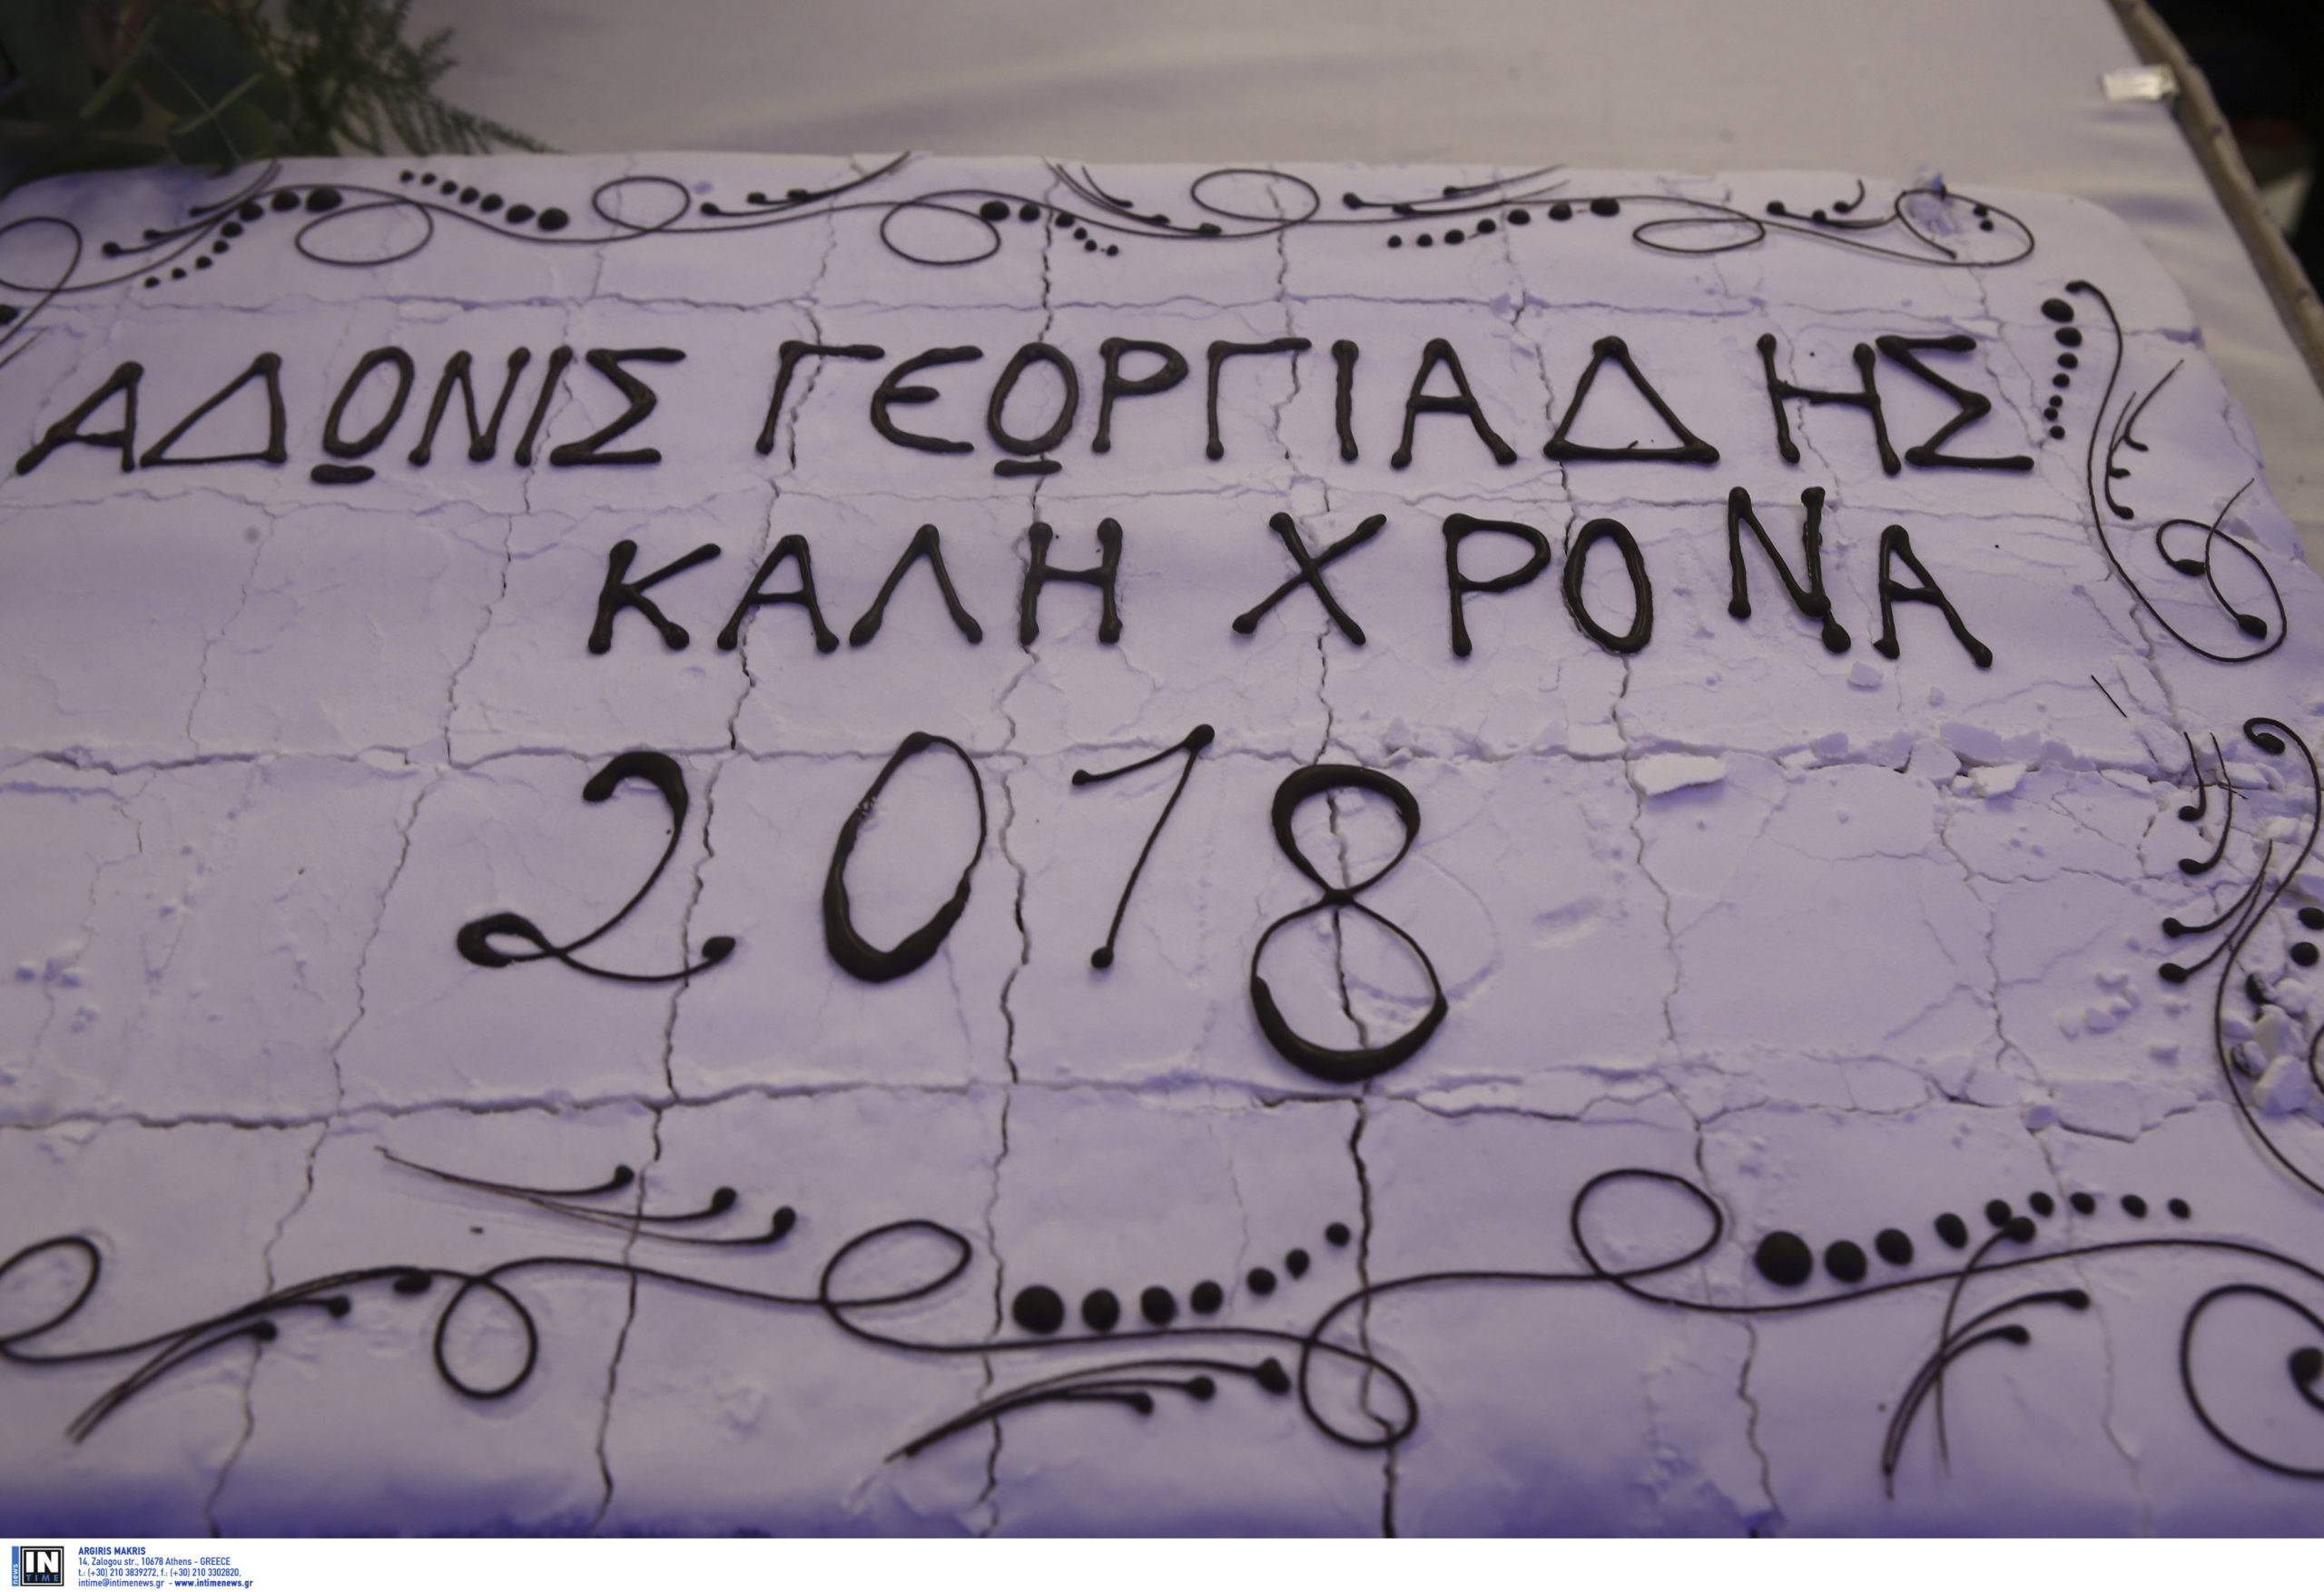 ΑΔΩΝΙΣ ΓΕΩΡΓΙΑΔΗΣ
ΚΑΛΗ ΧΡΟΝΑ
2018
news INTIME
ARGIRIS MAKRIS
14, Zalogou str., 10678 Athens - GREECE
t.: (+30) 210 3839272, f.: (+30) 210 3302820,
intime@intimenews.gr - www.intimenews.gr